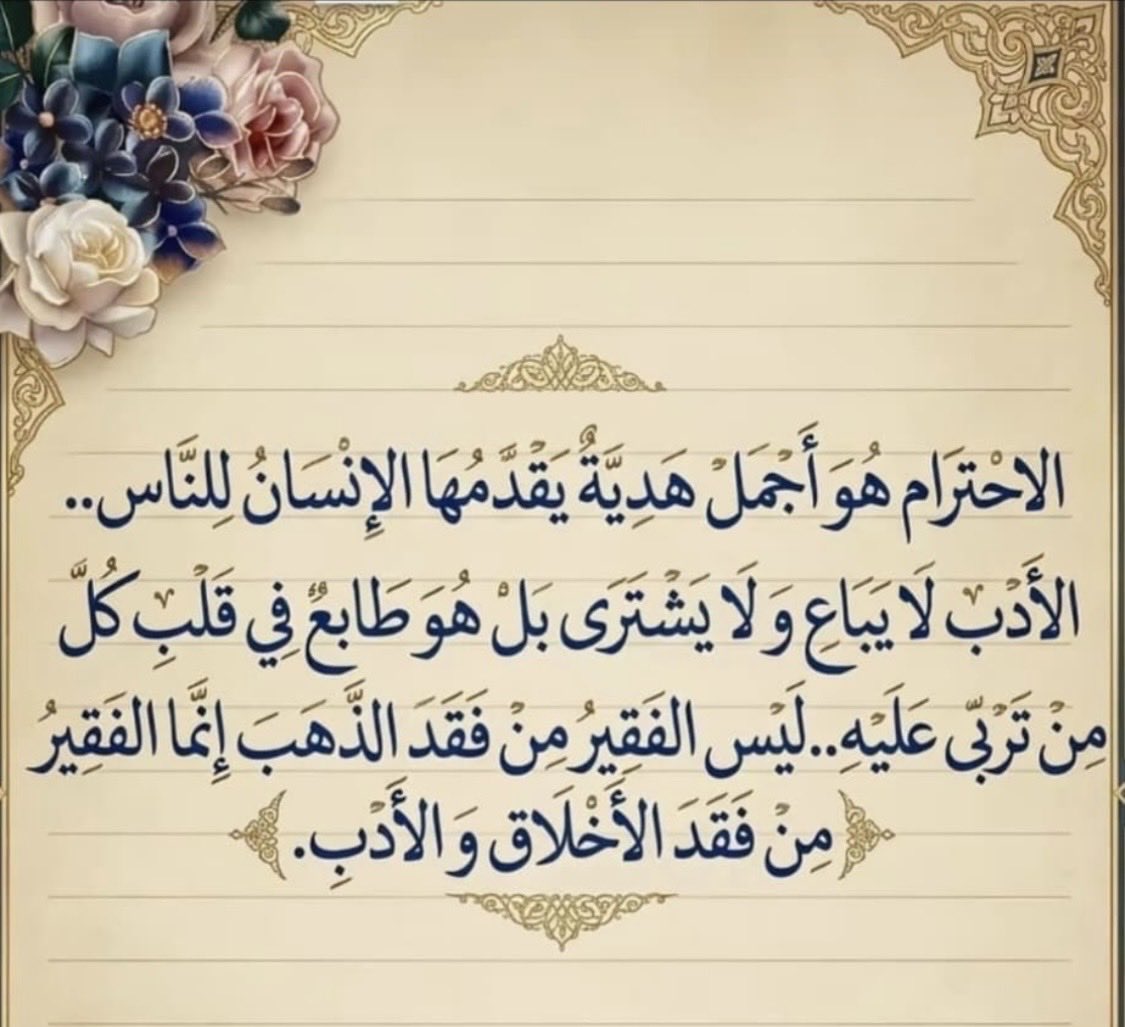 الاحْترَام هُوَ أَجْمَلْ هَدِيَّةٌ يَقْدَّمُهَا الإِنْسَانُ لِلنَّاس..
الأَدْب لَا يَبَاعِ وَ لَا يَشْتَرَى بَلْ هُوَ طَابعٌ فِي قَلْبِ كُلَّ
مِنْ تَرْبّى عَلَيْهِ..لَيْس الفَقِيرُ مِنْ فَقَدَ الذَّهَبَ إِنَّمَا الفَقِيرُ
مِنْ فَقَدَ الأَخْلَاق وَ الأَدْبِ.